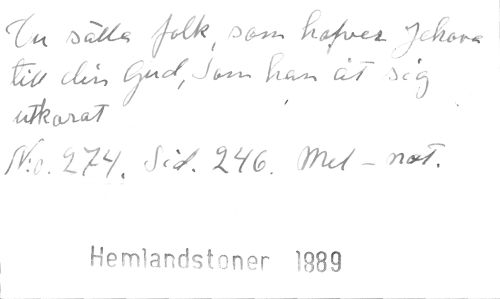 Du sälla folk, som hafver Jehova
till din Gud, som han åt sig
utkorat
No. 274. Sid. 246. Mel-not.
Hemlandstoner 1889